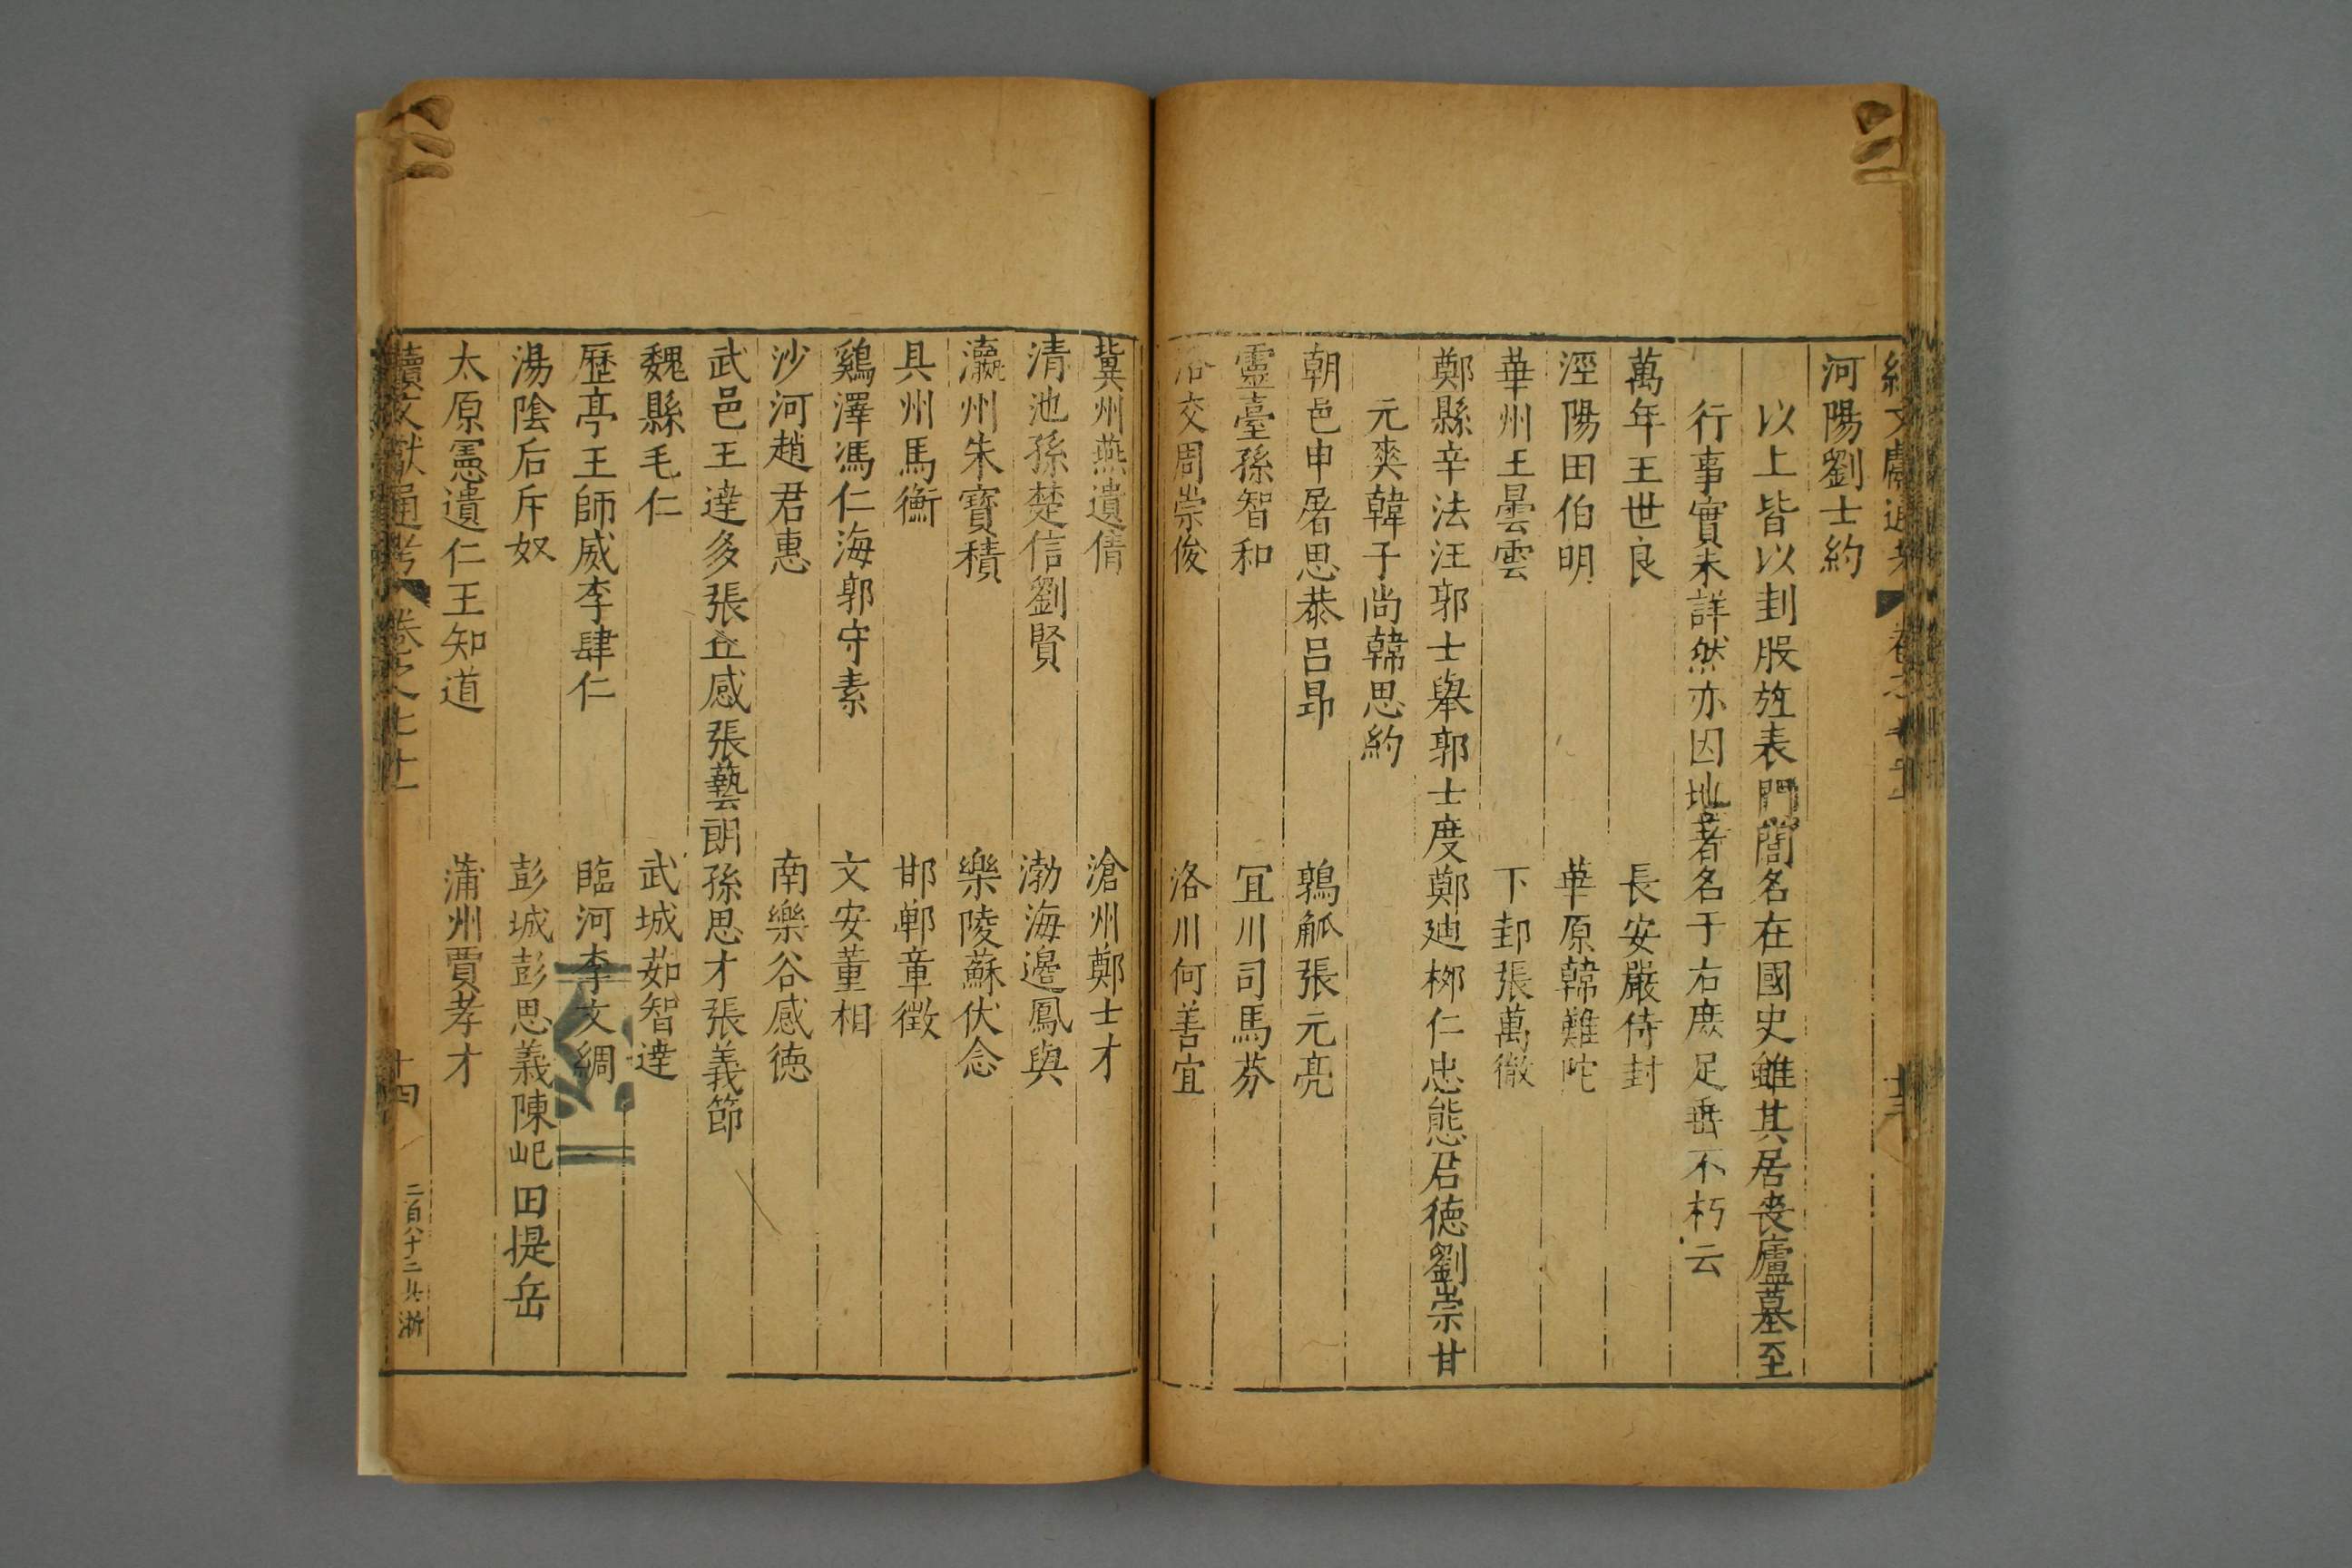 河陽劉士約
以上皆以刲股旌表門閭名在國史雖其居喪廬墓至
行事實未詳然亦因地著名于右庶足垂不朽云
萬年王世良 長安嚴待封
涇陽田伯明 華原韓難陀
華州王曇雲 下邽張萬徹
鄭縣辛法汪郭士舉郭士度鄭廸栁仁忠態君德劉崇甘
元爽韓子尚韓思約
朝邑申屠思恭吕昻 鶉觚張元亮
靈臺孫智和 冝川司馬芬
洛交周崇俊 洛川何善宜
冀州燕遺倩 滄州鄭士才
清池孫楚信劉賢 渤海邊鳳與
瀛州朱寶積 樂陵蘇伏念
具州馬衡 邯鄲章徵
鷄澤馮仁海郭守素 文安董相
沙河趙君惠 南樂谷感德
武邑王達多張丘感張藝朗孫思才張義節
魏縣毛仁 武城茹智達
歷亭王師威李肆仁 臨河李文綢
湯陰后斥奴 彭城彭思義陳屺田提岳
太原憲遺仁王知道 蒲州賈孝才
續文獻通考 卷之七十一 十四 二百八十二 浙